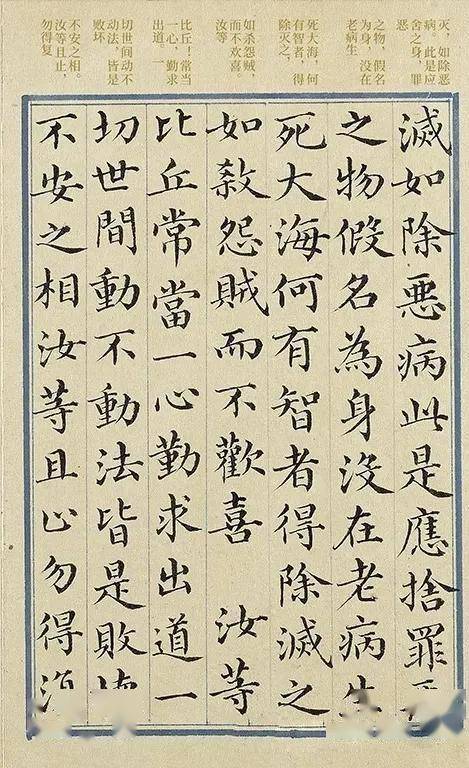 灭，如除恶
病。此是应
舍之身，罪
恶
之物，假名
为身，没在
老病生
死大海，何
有智者，得
除灭之，
如杀怨贼，
而不欢喜。
汝等
比丘！常当
一心，勤求
出道。一
切世间动不
动法，皆是
败坏
不安之相。
汝等且止，
勿得复
滅如除惡病此是應捨罪
之物假名為身沒在老病生
死大海何有智者得除滅之
如殺怨賊而不歡喜 汝等
比丘常當一心勤求出道一
切世間動不動法皆是敗
不安之相汝等且止勿得